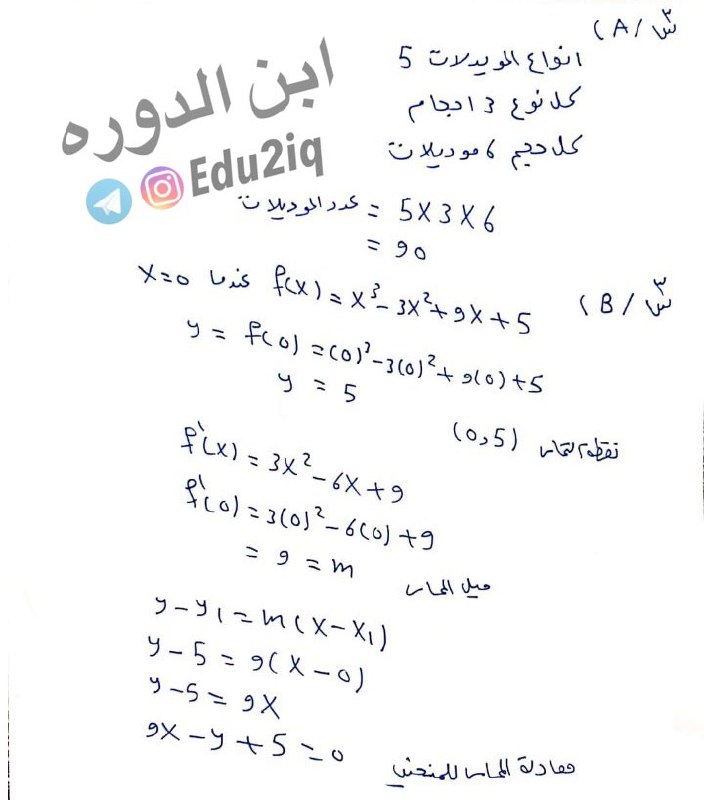 س٣ / A )
انواع الموديلات 5
كل نوع 3 احجام
كل حجم 6 موديلات
ابن الدوره
Edu2iq
عدد الموديلات = 5 X 3 X 6
= 90
س٣ / B ) f(x) = x³ - 3x² + 9x + 5 عندما x = 0
y = f(0) = (0)³ - 3(0)² + 9(0) + 5
y = 5
نقطة التماس (0,5)
f'(x) = 3x² - 6x + 9
f'(0) = 3(0)² - 6(0) + 9
= 9 = m ميل المماس
y - y₁ = m(x - x₁)
y - 5 = 9(x - 0)
y - 5 = 9x
9x - y + 5 = 0 معادلة المماس للمنحني